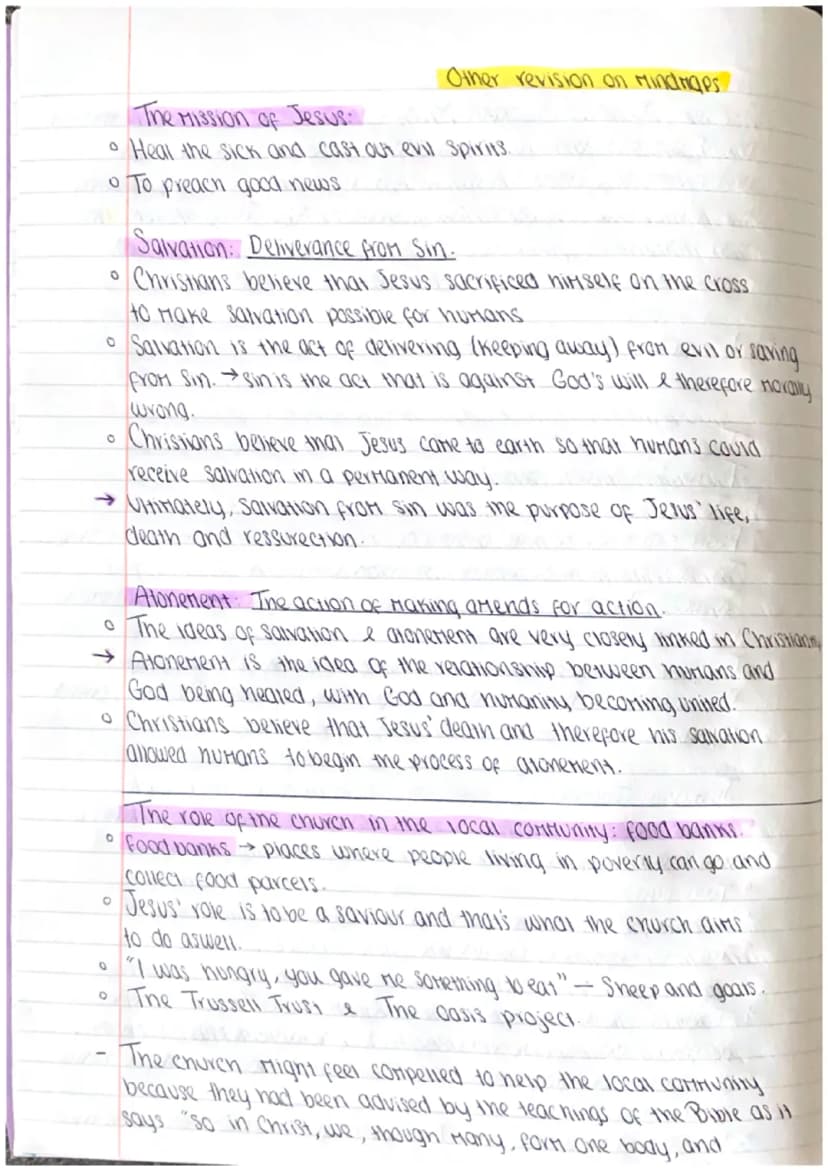 Other revision on Mindmaps
The Mission of Jesus:
Heal the sick and cast out evil spirits.
To preach good news
Salvation: Deliverance from Sin.
Christians believe that Jesus sacrificed himself on the cross
to make salvation possible for humans
Salvation is the act of delivering (keeping away) from evil or saving
from Sin. → sin is the act that is against God's will & therefore morally
wrong.
Christians believe that Jesus came to earth so that humans could
receive salvation in a permanent way.
→ Ultimately, Salvation from sin was the purpose of Jesus' life,
death and ressurection.
Atonement: The action of making amends for action.
The ideas of salvation & atonement are very closely linked in Christianity
→ Atonement is the idea of the relationship between humans and
God being healed, with God and humanity becoming united.
Christians believe that Jesus' death and therefore his salvation
allowed humans to begin the process of atonement.
The role of the church in the local community: food banks.
food banks → places where people living in poverty can go and
collect food parcels.
Jesus' role is to be a saviour and thats what the church aims
to do aswell.
"I was hungry, you gave me something to eat" – Sheep and goats.
The Trussell Trust & The Oasis project.
- The church might feel compelled to help the local community
because they had been advised by the teachings of the Bible as it
says "so in Christ, we, though many, form one body, and